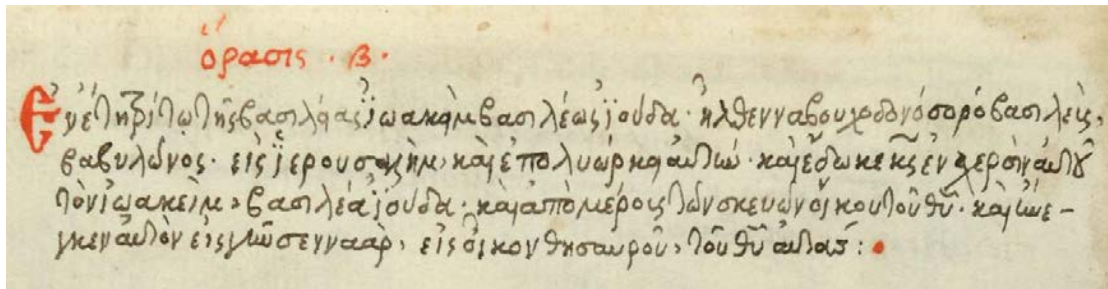 ὅρασις · β ·
Ἐν ἔτη τρίτω τῆς βασιλείας ἰωακεὶμ βασιλέως ἰούδα · ἦλθεν ναβουχοδονόσορ ὁ βασιλεὺς,
βαβυλῶνος · εἰς ἱερουσαλὴμ, καὶ ἐπολυώρκει αὐτήν · καὶ ἔδωκε κς ἐν χερσὶν αὐτοῦ
τὸν ἰωακεὶμ, βασιλέα ἰούδα · καὶ ἀπὸ μέροις τῶν σκευῶν οἴκου τοῦ θυ · καὶ ἤνε-
γκεν αὐτὸν εἰς γῆν σενναὰρ, εἰς οἶκον θησαυροῦ, τοῦ θυ αὐτοῦ :